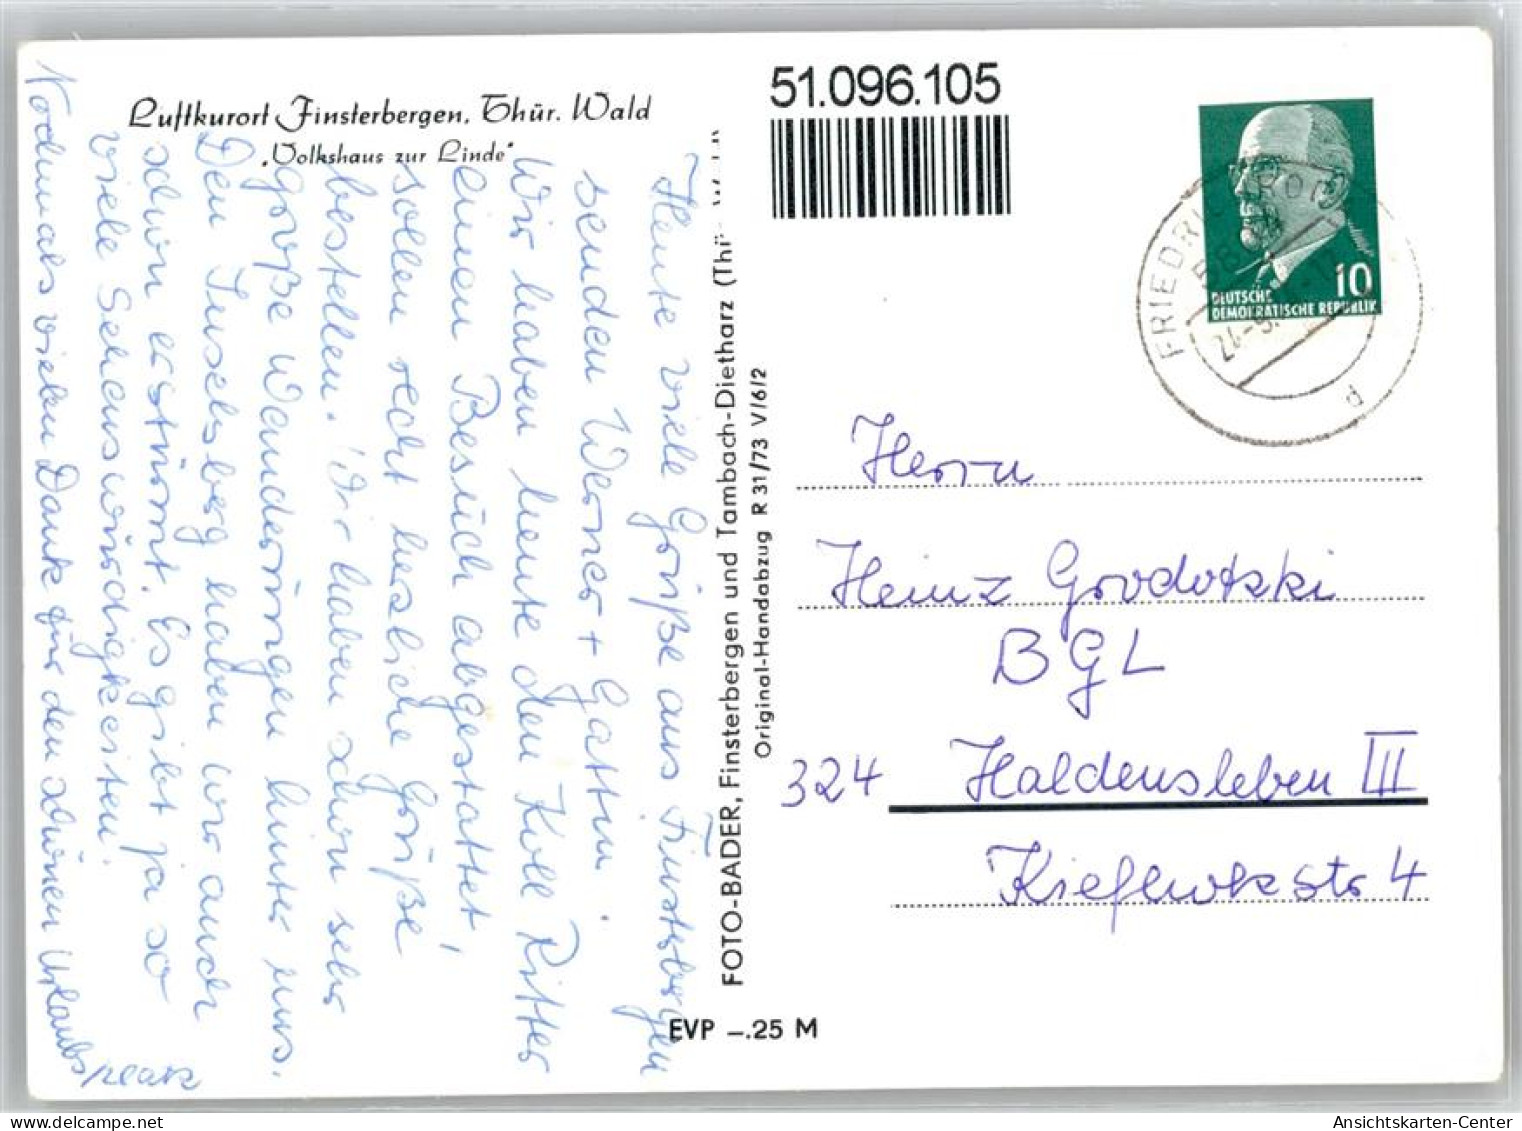 Luftkurort Finsterbergen, Thür. Wald
„Volkshaus zur Linde"
Heute viele Grüße aus Finsterbergen
senden Werner + Gattin.
Wir haben heute den Koll Ritter
einen Besuch abgestattet,
sollen recht herzliche Grüße
bestellen. Wir haben schon sehr
große Wanderungen hinter uns.
Den Inselsberg haben wir auch
schon erstürmt. Es gibt ja so
viele Sehenswürdigkeiten.
Nochmals vielen Dank für den schönen Urlaubs
platz
FOTO-BADER, Finsterbergen und Tambach-Dietharz (Thü
Original-Handabzug R 31/73 V/6/2
EVP –.25 M
51.096.105
10
DEUTSCHE
DEMOKRATISCHE REPUBLIK
FRIEDRICHRODA
d
Herrn
Heinz Grodotzki
BGL
324 Haldensleben III
Str 4
Ansichtskarten-Center